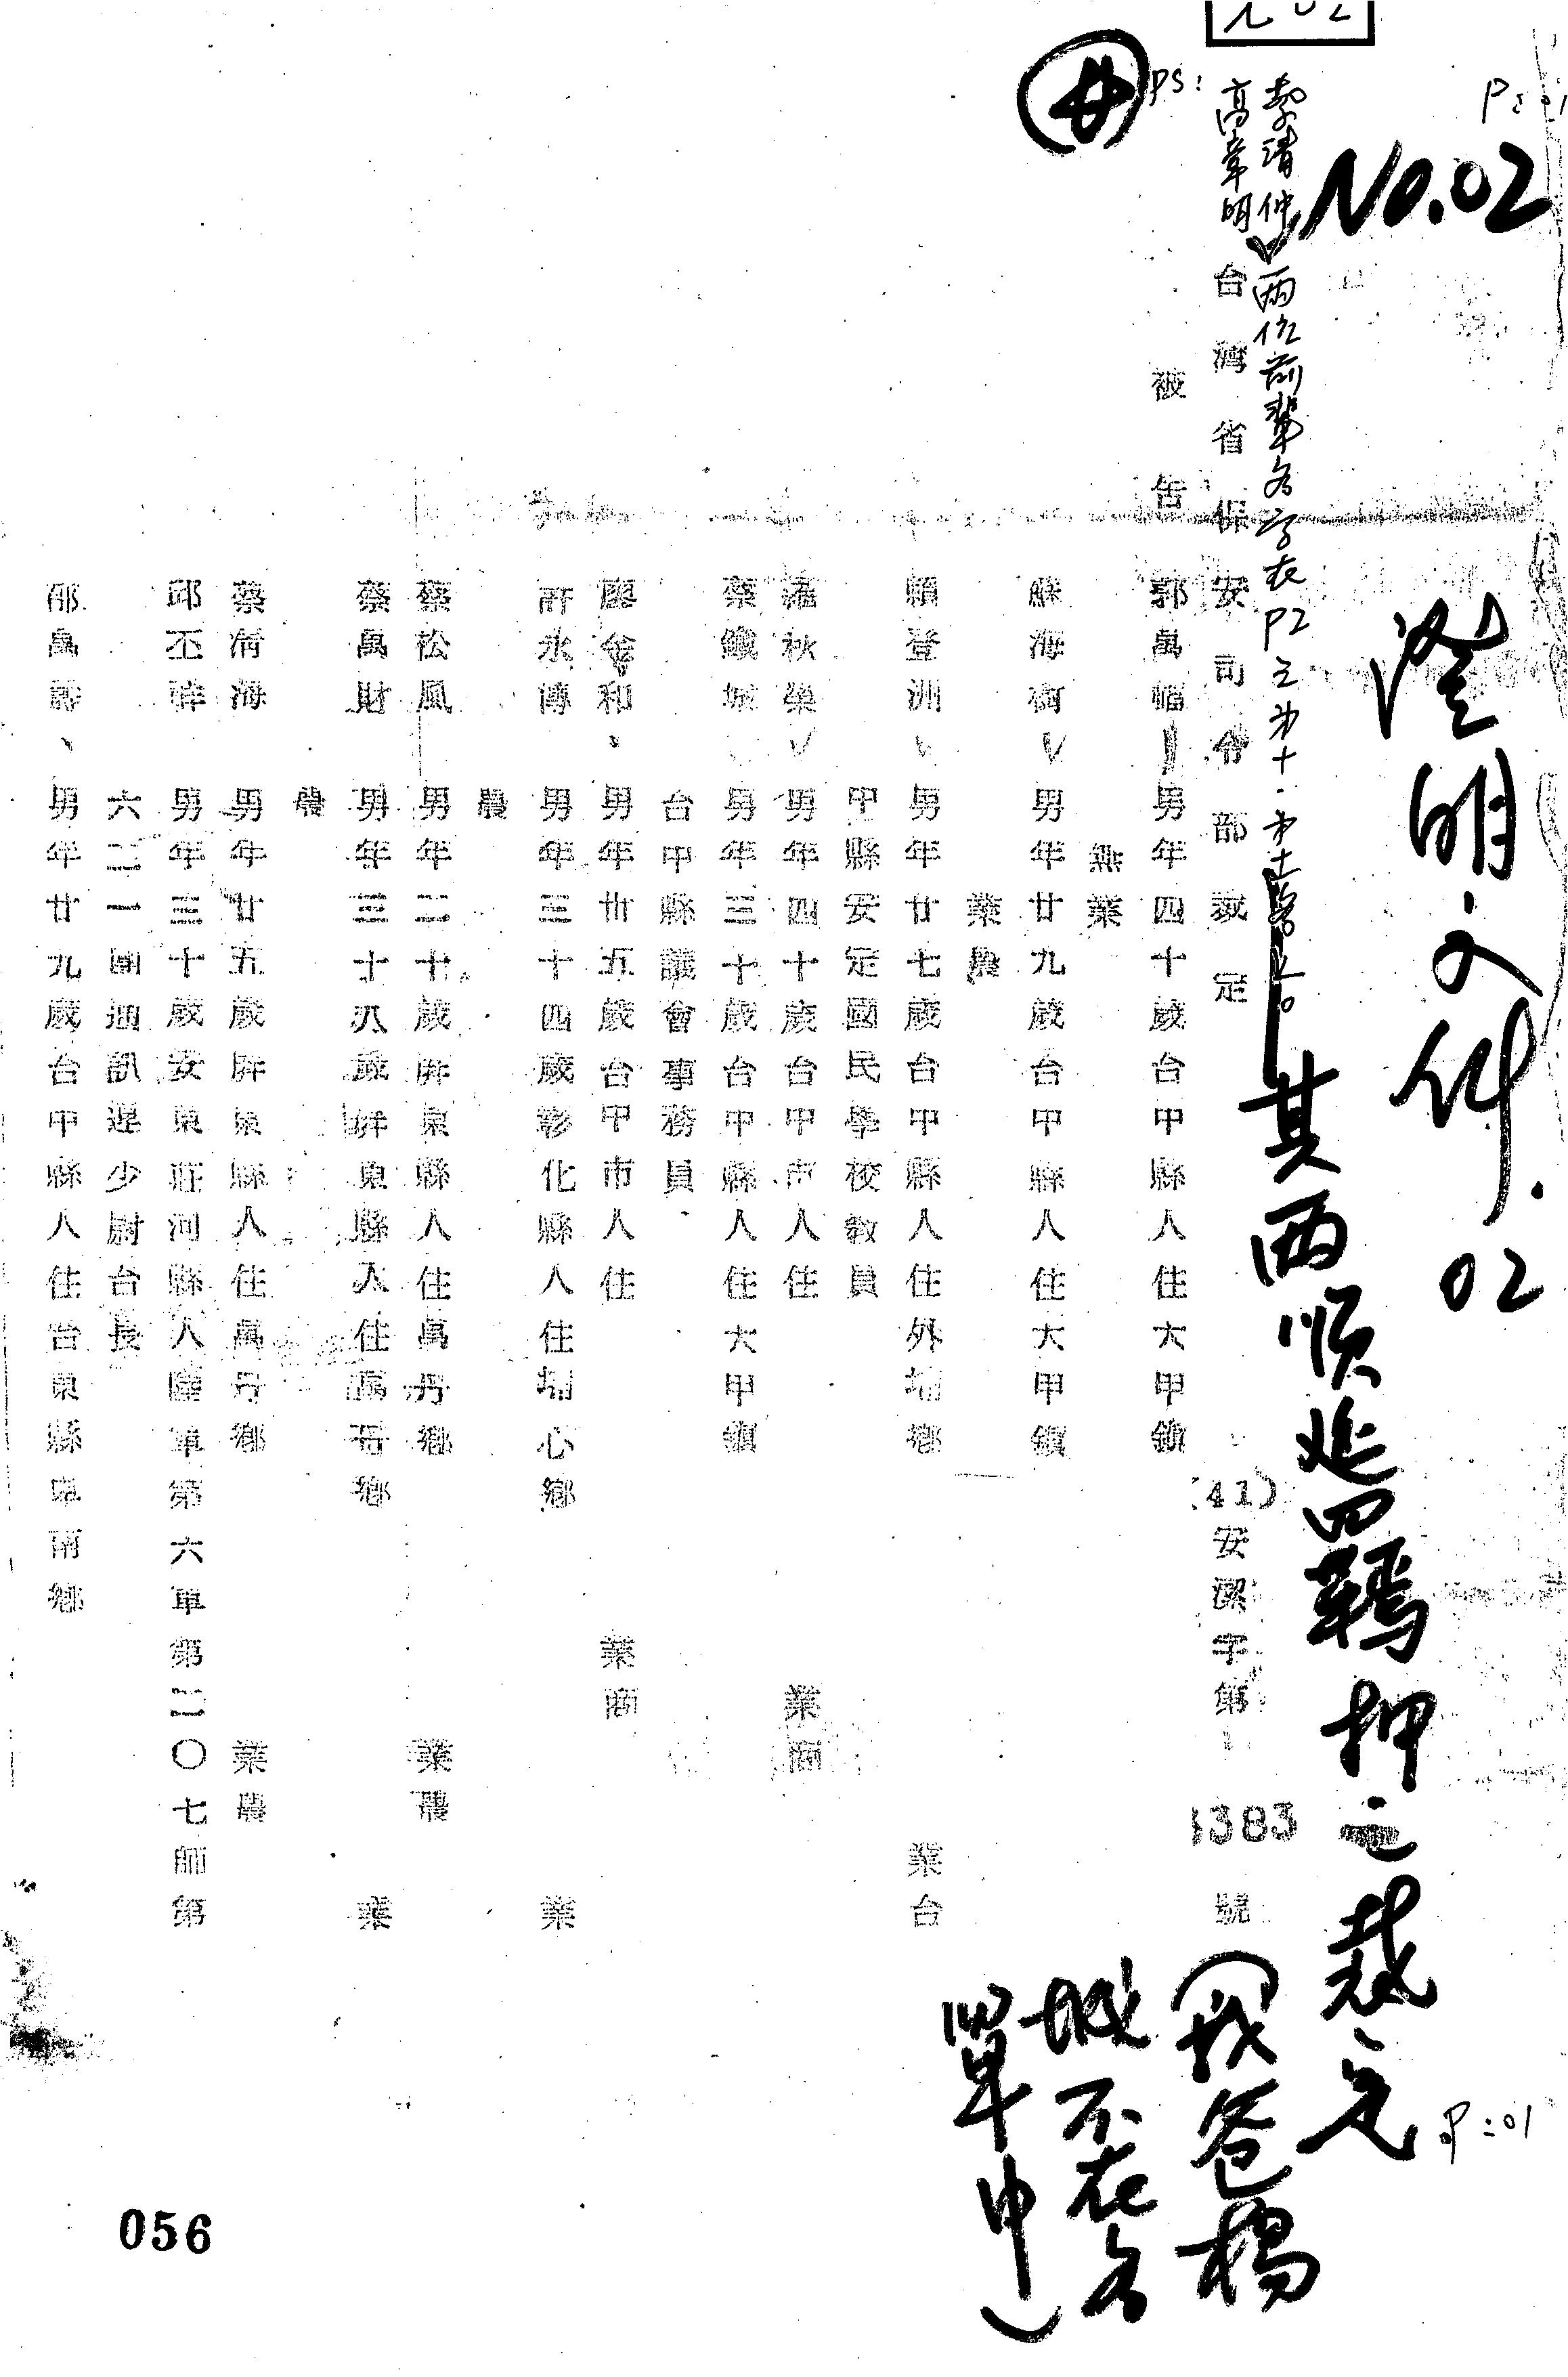 No.02
證明文件.02
其兩順延四羈押之裁定
P:01
(我爸楊
城不在名
單中)
PS:
黎清仲
高章明
兩位前輩名字在P2之第十.第十
台灣省保安司令部裁定 (41)安潔字第 1383 號
被告 郭萬福 男年四十歲台中縣人住大甲鎮
無業
蘇海樹 男年廿九歲台中縣人住大甲鎮
業農
賴登洲 男年廿七歲台中縣人住外埔鄉 業台
中縣安定國民學校教員
羅秋榮 男年四十歲台中市人住 業商
蔡鐵城 男年三十歲台中縣人住大甲鎮
台中縣議會事務員
廖金和 男年卅五歲台中市人住 業商
許永傳 男年三十四歲彰化縣人住埔心鄉 業
農
蔡松風 男年二十歲屏東縣人住萬丹鄉 業農
蔡萬財 男年三十八歲屏東縣人住萬丹鄉 業
農
蔡清海 男年廿五歲屏東縣人住萬丹鄉 業農
邱丕祥 男年三十歲安東莊河縣人陸軍第六軍第二〇七師第
六二一團通訊連少尉台長
邵萬壽 男年廿九歲台中縣人住台東縣卑南鄉
056